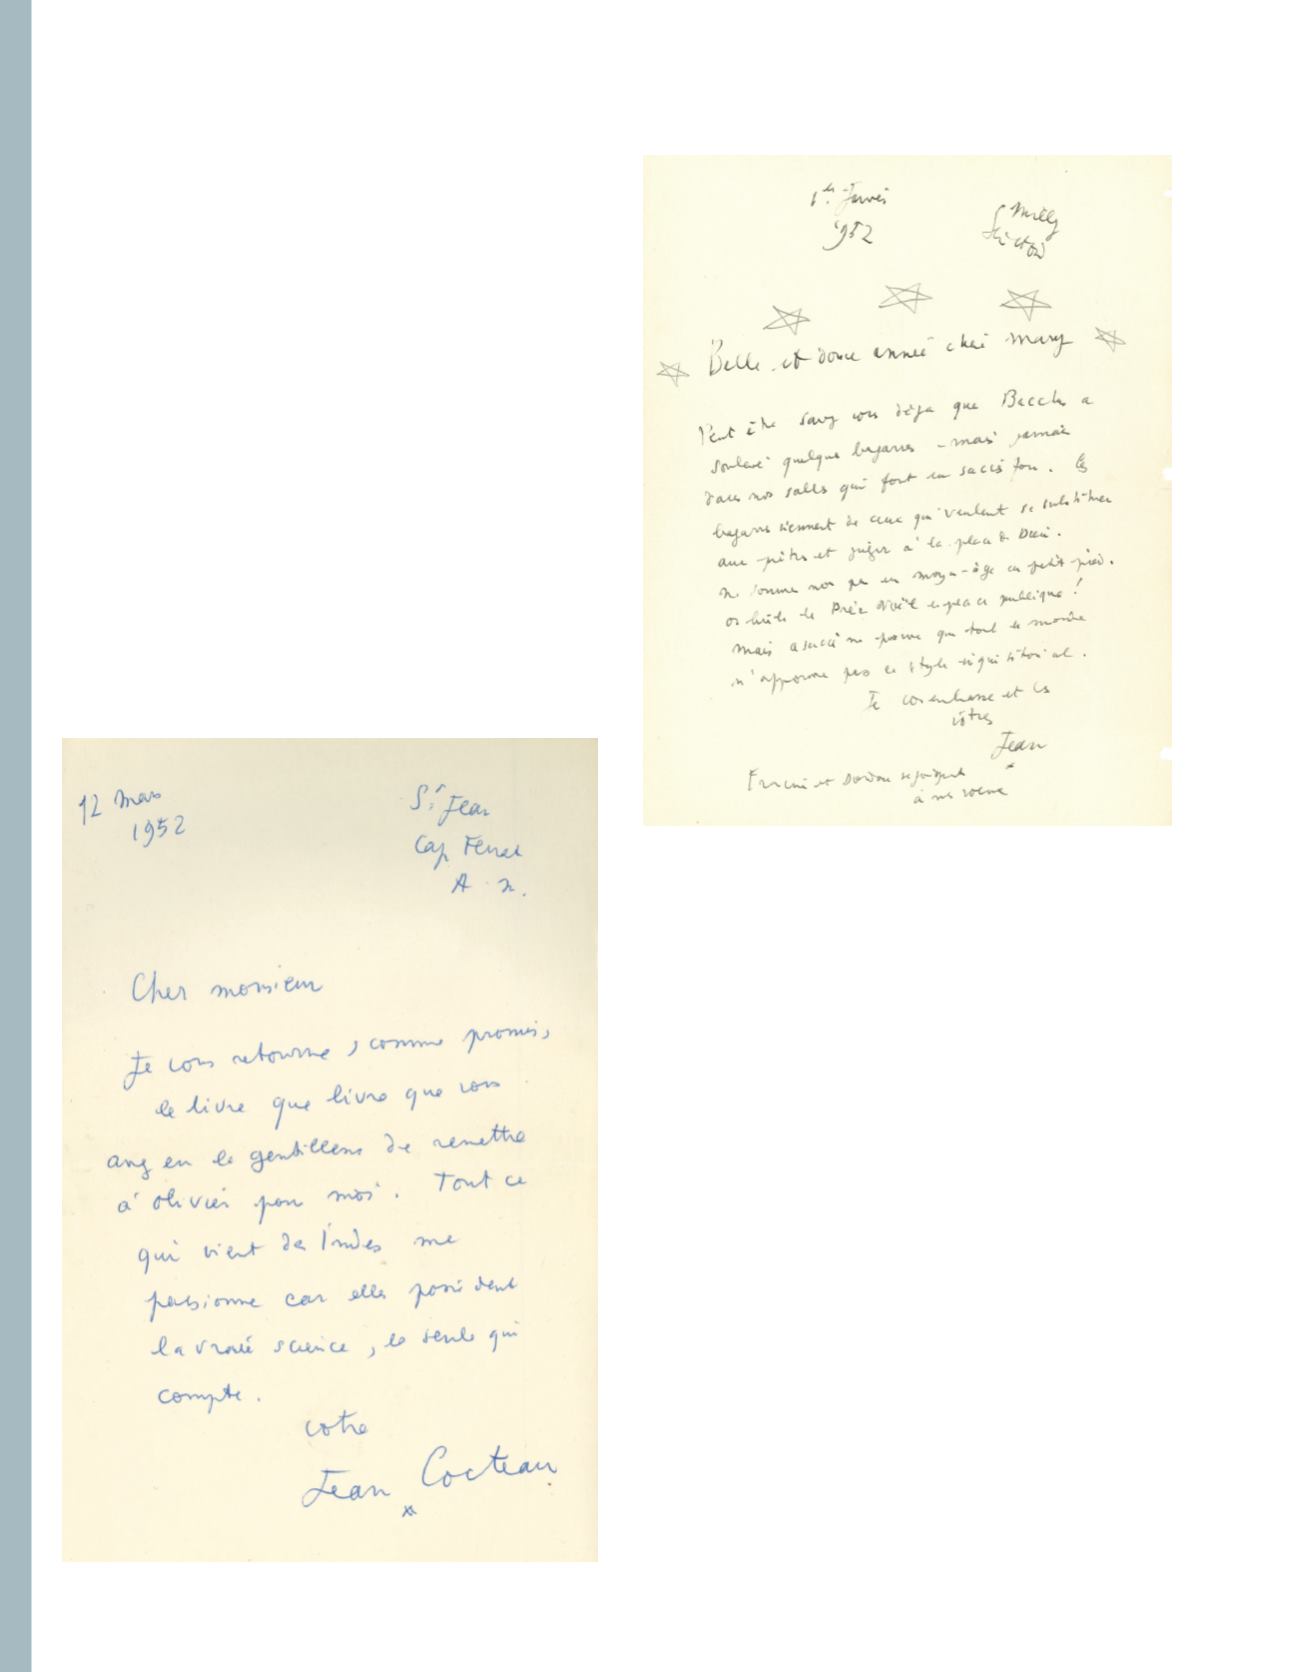 1er Janvier
1952
Milly
S. et Oise
Belle et douce année chère Mary
Peut être savez vous déjà que Bacchus a
soulevé quelques bagarres - mais jamais
dans nos salles qui font un succès fou. Les
bagarres viennent de ceux qui veulent se substituer
aux prêtres et juger à la place de Dieu.
ne sommes nous pas en moyen-âge au petit pied.
on brûle le Père Noël en place publique!
mais ce succès me prouve que tout le monde
n'approuve pas ce style inquisitorial.
Je vous embrasse et les
vôtres
Jean
Francine et Doudou se joignent
à mes voeux
12 Mars
1952
St Jean
Cap Ferrat
A. M.
Cher monsieur
Je vous retourne, comme promis,
le livre que livre que vous
avez eu la gentillesse de remettre
à olivier pour moi. Tout ce
qui vient des Indes me
passionne car elles possèdent
la vraie science, la seule qui
compte.
votre
Jean Cocteau